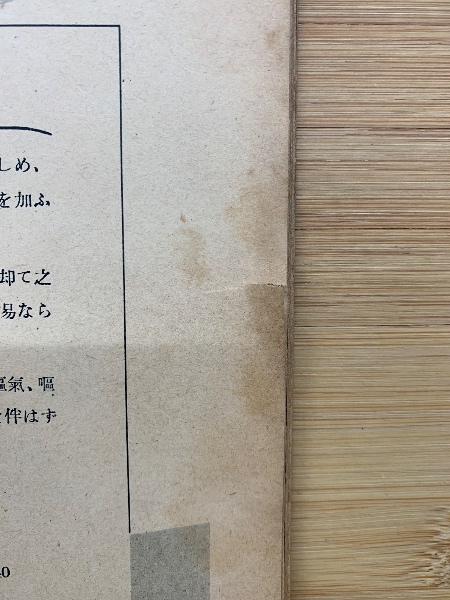 しめ、
を加ふ
却て之
易なら
嘔氣、嘔
伴はず
40